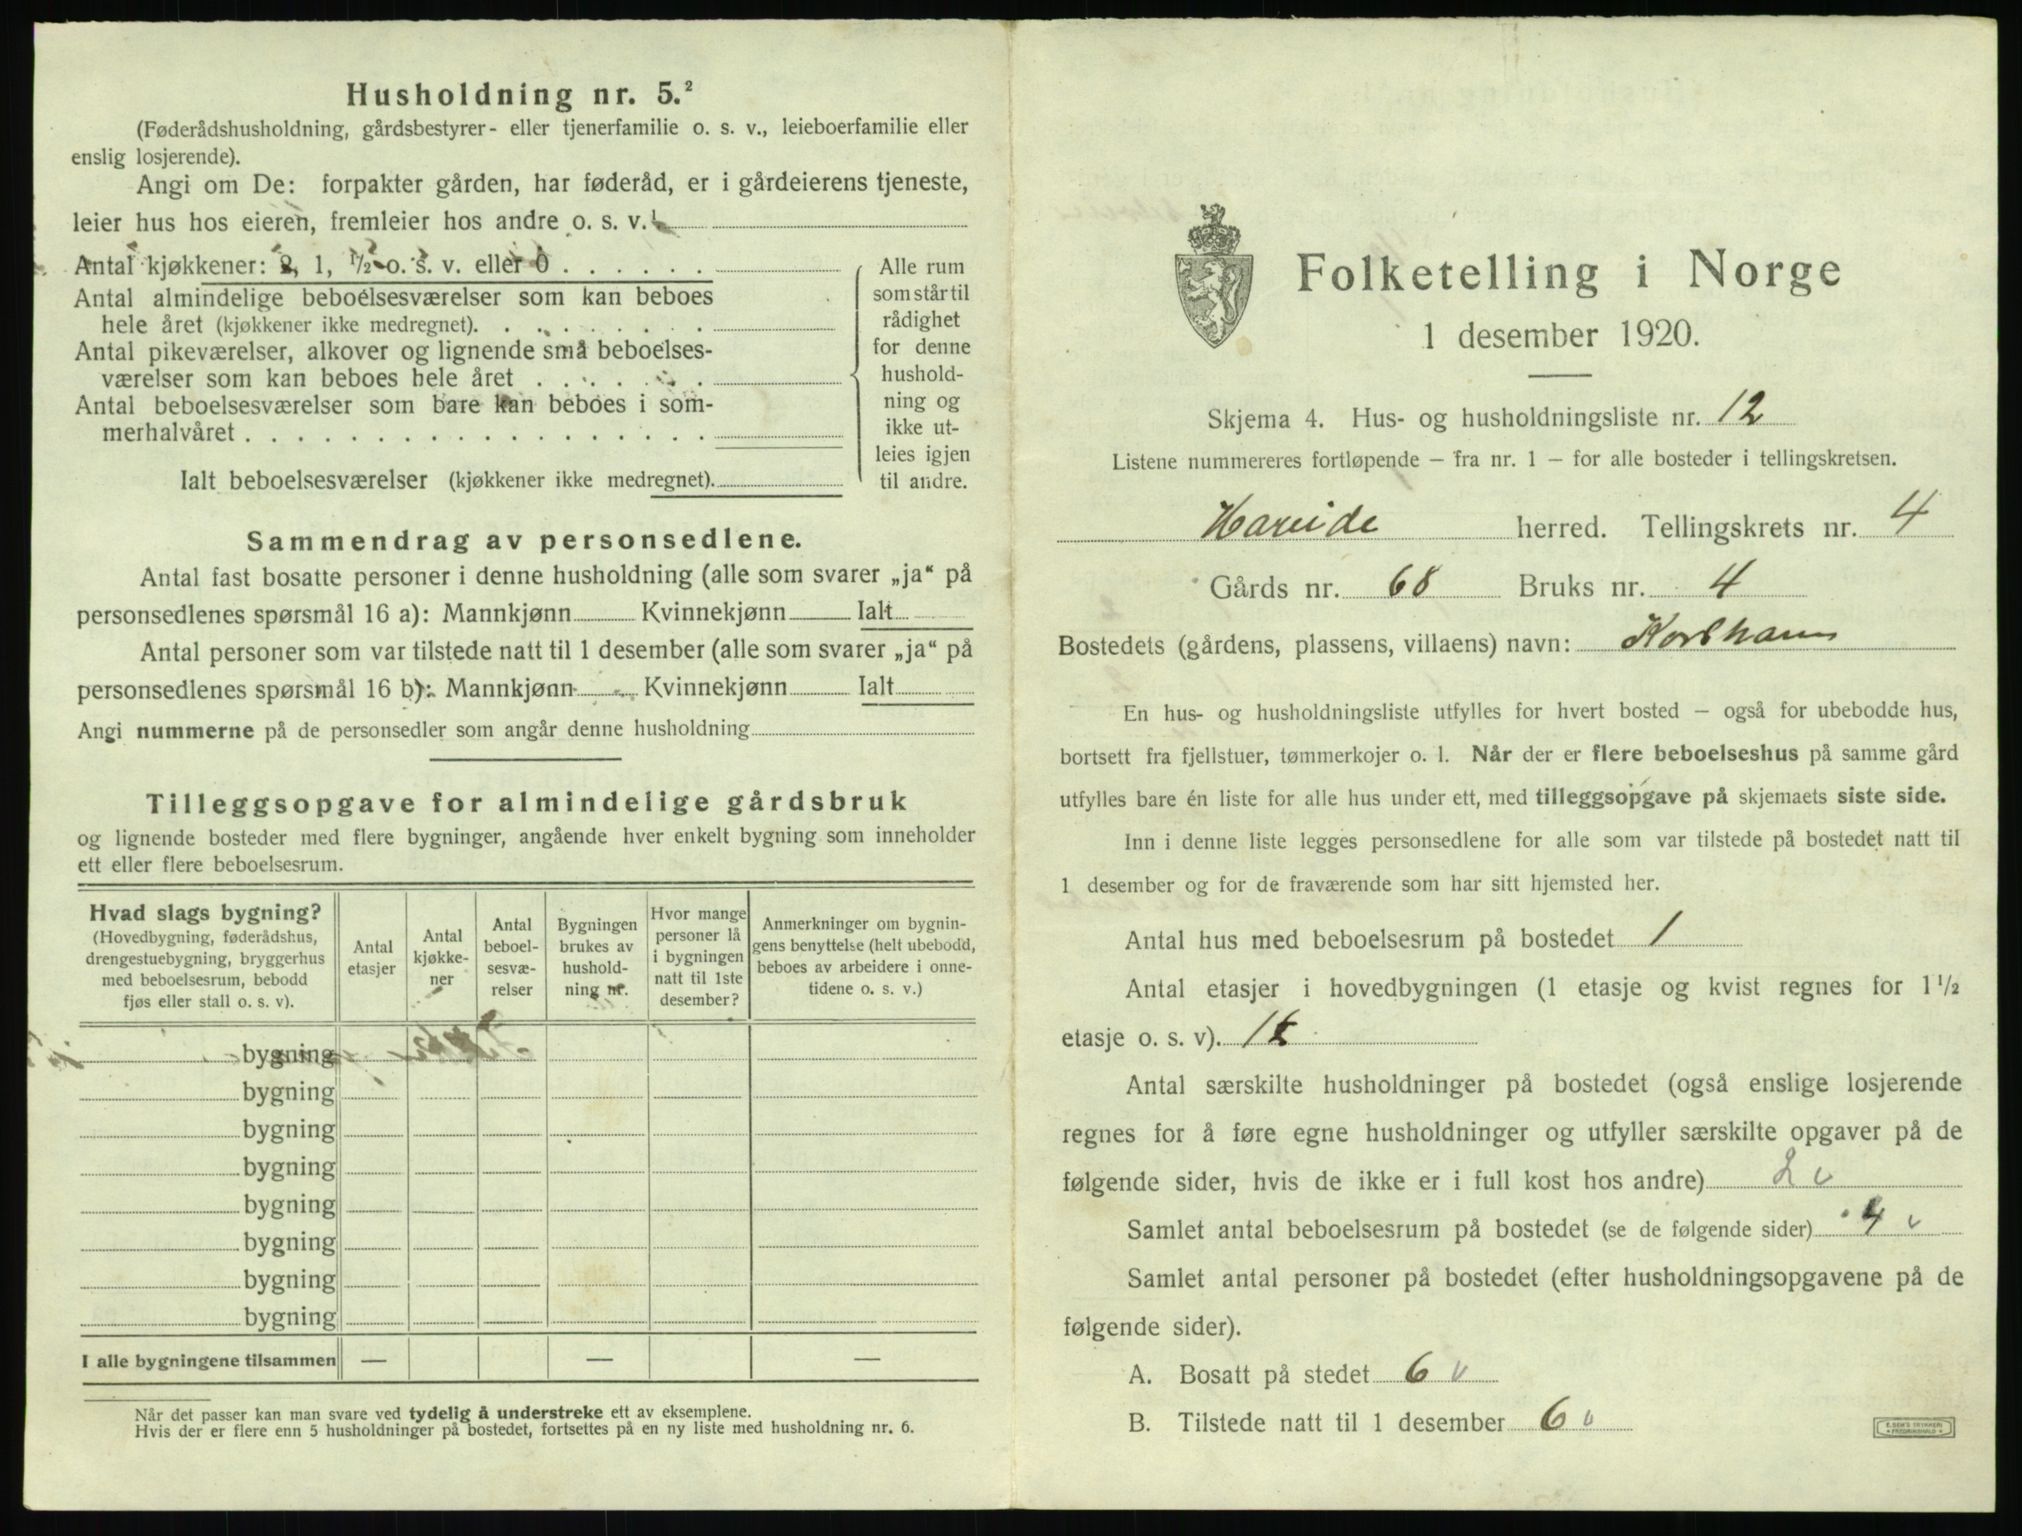 Husholdning nr. 5.²
(Føderådshusholdning, gårdsbestyrer- eller tjenerfamilie o. s. v., leieboerfamilie eller
enslig losjerende).
Angi om De: forpakter gården, har føderåd, er i gårdeierens tjeneste,
leier hus hos eieren, fremleier hos andre o. s. v.¹
Antal kjøkkener: 2, 1, ½ o. s. v. eller 0 . . . . . .
Antal almindelige beboelsesværelser som kan beboes
hele året (kjøkkener ikke medregnet). . . . . . . . .
Antal pikeværelser, alkover og lignende små beboelses-
værelser som kan beboes hele året . . . . . . .
Antal beboelsesværelser som bare kan beboes i som-
merhalvåret . . . . . . . . . . . . . . . . . .
Ialt beboelsesværelser (kjøkkener ikke medregnet).
Alle rum
som står til
rådighet
for denne
hushold-
ning og
ikke ut-
leies igjen
til andre.
Sammendrag av personsedlene.
Antal fast bosatte personer i denne husholdning (alle som svarer „ja“ på
personsedlenes spørsmål 16 a): Mannkjønn Kvinnekjønn Ialt
Antal personer som var tilstede natt til 1 desember (alle som svarer „ja“ på
personsedlenes spørsmål 16 b): Mannkjønn Kvinnekjønn Ialt
Angi nummerne på de personsedler som angår denne husholdning
Tilleggsopgave for almindelige gårdsbruk
og lignende bosteder med flere bygninger, angående hver enkelt bygning som inneholder
ett eller flere beboelsesrum.
Hvad slags bygning?
(Hovedbygning, føderådshus,
drengestuebygning, bryggerhus
med beboelsesrum, bebodd
fjøs eller stall o. s. v).
Antal
etasjer
Antal
kjøkke-
ner
Antal
beboel-
sesvæ-
relser
Bygningen
brukes av
hushold-
ning nr.
Hvor mange
personer lå
i bygningen
natt til 1ste
desember?
Anmerkninger om bygnin-
gens benyttelse (helt ubebodd,
beboes av arbeidere i onne-
tidene o. s. v.)
bygning
bygning
bygning
bygning
bygning
bygning
bygning
bygning
I alle bygningene tilsammen — — —
Når det passer kan man svare ved tydelig å understreke ett av eksemplene.
Hvis der er flere enn 5 husholdninger på bostedet, fortsettes på en ny liste med husholdning nr. 6.
Folketelling i Norge
1 desember 1920.
Skjema 4. Hus- og husholdningsliste nr. 12
Listene nummereres fortløpende – fra nr. 1 – for alle bosteder i tellingskretsen.
Hareide herred. Tellingskrets nr. 4
Gårds nr. 68 Bruks nr. 4
Bostedets (gårdens, plassens, villaens) navn:
En hus- og husholdningsliste utfylles for hvert bosted – også for ubebodde hus,
bortsett fra fjellstuer, tømmerkojer o. l. Når der er flere beboelseshus på samme gård
utfylles bare én liste for alle hus under ett, med tilleggsopgave på skjemaets siste side.
Inn i denne liste legges personsedlene for alle som var tilstede på bostedet natt til
1 desember og for de fraværende som har sitt hjemsted her.
Antal hus med beboelsesrum på bostedet 1
Antal etasjer i hovedbygningen (1 etasje og kvist regnes for 1½
etasje o. s. v).
Antal særskilte husholdninger på bostedet (også enslige losjerende
regnes for å føre egne husholdninger og utfyller særskilte opgaver på de
følgende sider, hvis de ikke er i full kost hos andre) 2 v
Samlet antal beboelsesrum på bostedet (se de følgende sider) 4 v
Samlet antal personer på bostedet (efter husholdningsopgavene på de
følgende sider).
A. Bosatt på stedet 6 v
B. Tilstede natt til 1 desember 6 v
E. SEM'S TRYKKERI
FREDRIKSHALD